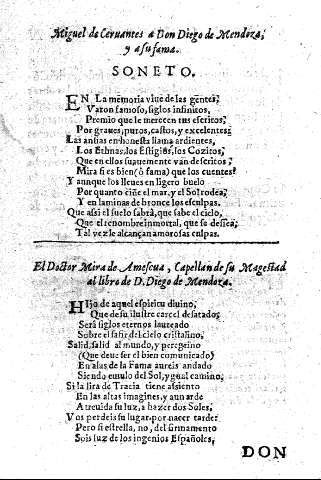 Miguel de Ceruantes a Don Diego de Mendoza,
y a su fama.
SONETO.
EN La memoria viue de las gentes,
Varon famoso, siglos infinitos,
Premio que le merecen tus escritos
Por graues, puros, castos, y excelentes.
Las ansias en honesta llama ardientes,
Los Ethnas, los Estigios, los Cozitos,
Que en ellos suauemente van descritos,
Mira si es bien (ô fama) que los cuentes?
Y aunque los lleues en ligero buelo
Por quanto ciñe el mar, y el Sol rodea,
Y en laminas de bronce los esculpas.
Que assi el suelo sabrà, que sabe el cielo,
Que el renombre inmortal, que se dessea,
Tal vez le alcançan amorosas culpas.
El Doctor Mira de Amescua, Capellan de su Magestad
al libro de D. Diego de Mendoza.
HIjo de aquel espiritu diuino,
Que de su ilustre carcel desatado,
Serà siglos eternos laureado
Sobre el safir del cielo cristalino,
Salid, salid al mundo, y peregino
(Que deue ser el bien comunicado)
En alas de la Fama aureis andado
Siendo emulo del Sol, ygual camino,
Si la lira de Tracia tiene assiento
En las altas imagines, y aun arde
Atreuida su luz, a hazer dos Soles,
Vos perdeis su lugar por nacer tarde:
Pero si estrella, no, del firmamento
Sois luz de los ingenios Españoles,
DON